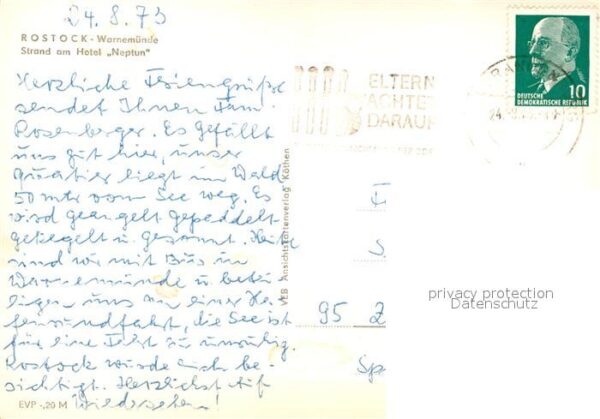 24.8.73
ROSTOCK - Warnemünde
Strand am Hotel „Neptun"
Herzliche Feriengrüße
sendet Ihnen Fam.
Rosenberger. Es gefällt
uns gut hier, unser
Quartier liegt im Wald
50 mtr vom See weg. Es
wird geangelt gepaddelt
gekegelt u. gesonnt. Heute
sind wir mit Bus in
Warnemünde u. betei-
ligen uns an einer Ha-
fenrundfahrt, die See ist
für eine Fahrt zu unruhig.
Rostock wurde auch be-
sichtigt. Herzlichst Auf
Wiedersehen!
EVP -,20 M
VEB Ansichtskartenverlag Köthen
ELTERN
ACHTET
DARAUF
DEUTSCHE
DEMOKRATISCHE REPUBLIK
10
24.
F
S
95 Z
Sp
privacy protection
Datenschutz